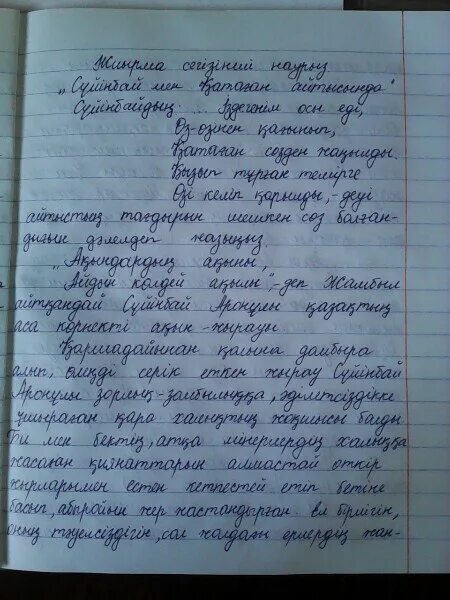 Жиырма сегізінші наурыз
„Сүйінбай мен Қатаған айтысында"
Сүйінбайдың ... Іздегенім осы еді,
Өз-өзінен қағынып,
Қатаған сөзден жаңылды.
Қызып тұрған темірге
Өзі келіп қарылды, - деуі
айтыстың тағдырын шешкен сөз болған-
дығын дәлелдеп жазыңыз.
„Ақындардың ақыны,
Айдын көлдей ақылы", - деп Жамбыл
айтқандай Сүйінбай Аронұлы қазақтың
аса көрнекті ақын - жырауы
Қармадайынан қолына домбыра
алып, өлеңді серік еткен жырау Сүйінбай
Аронұлы зорлық-зомбылыққа, әділетсіздікке
ұшыраған қара халықтың жоқшысы болды
Би мен бектің, атқа мінерлердің халыққа
жасаған қиянаттарын алмастай өткір
жырларымен естен кетпестей етіп бетіне
басып, абыройын жер жастандырған. Ел бірлігін,
оның тәуелсіздігін, сол жолдағы ерлердің жан-